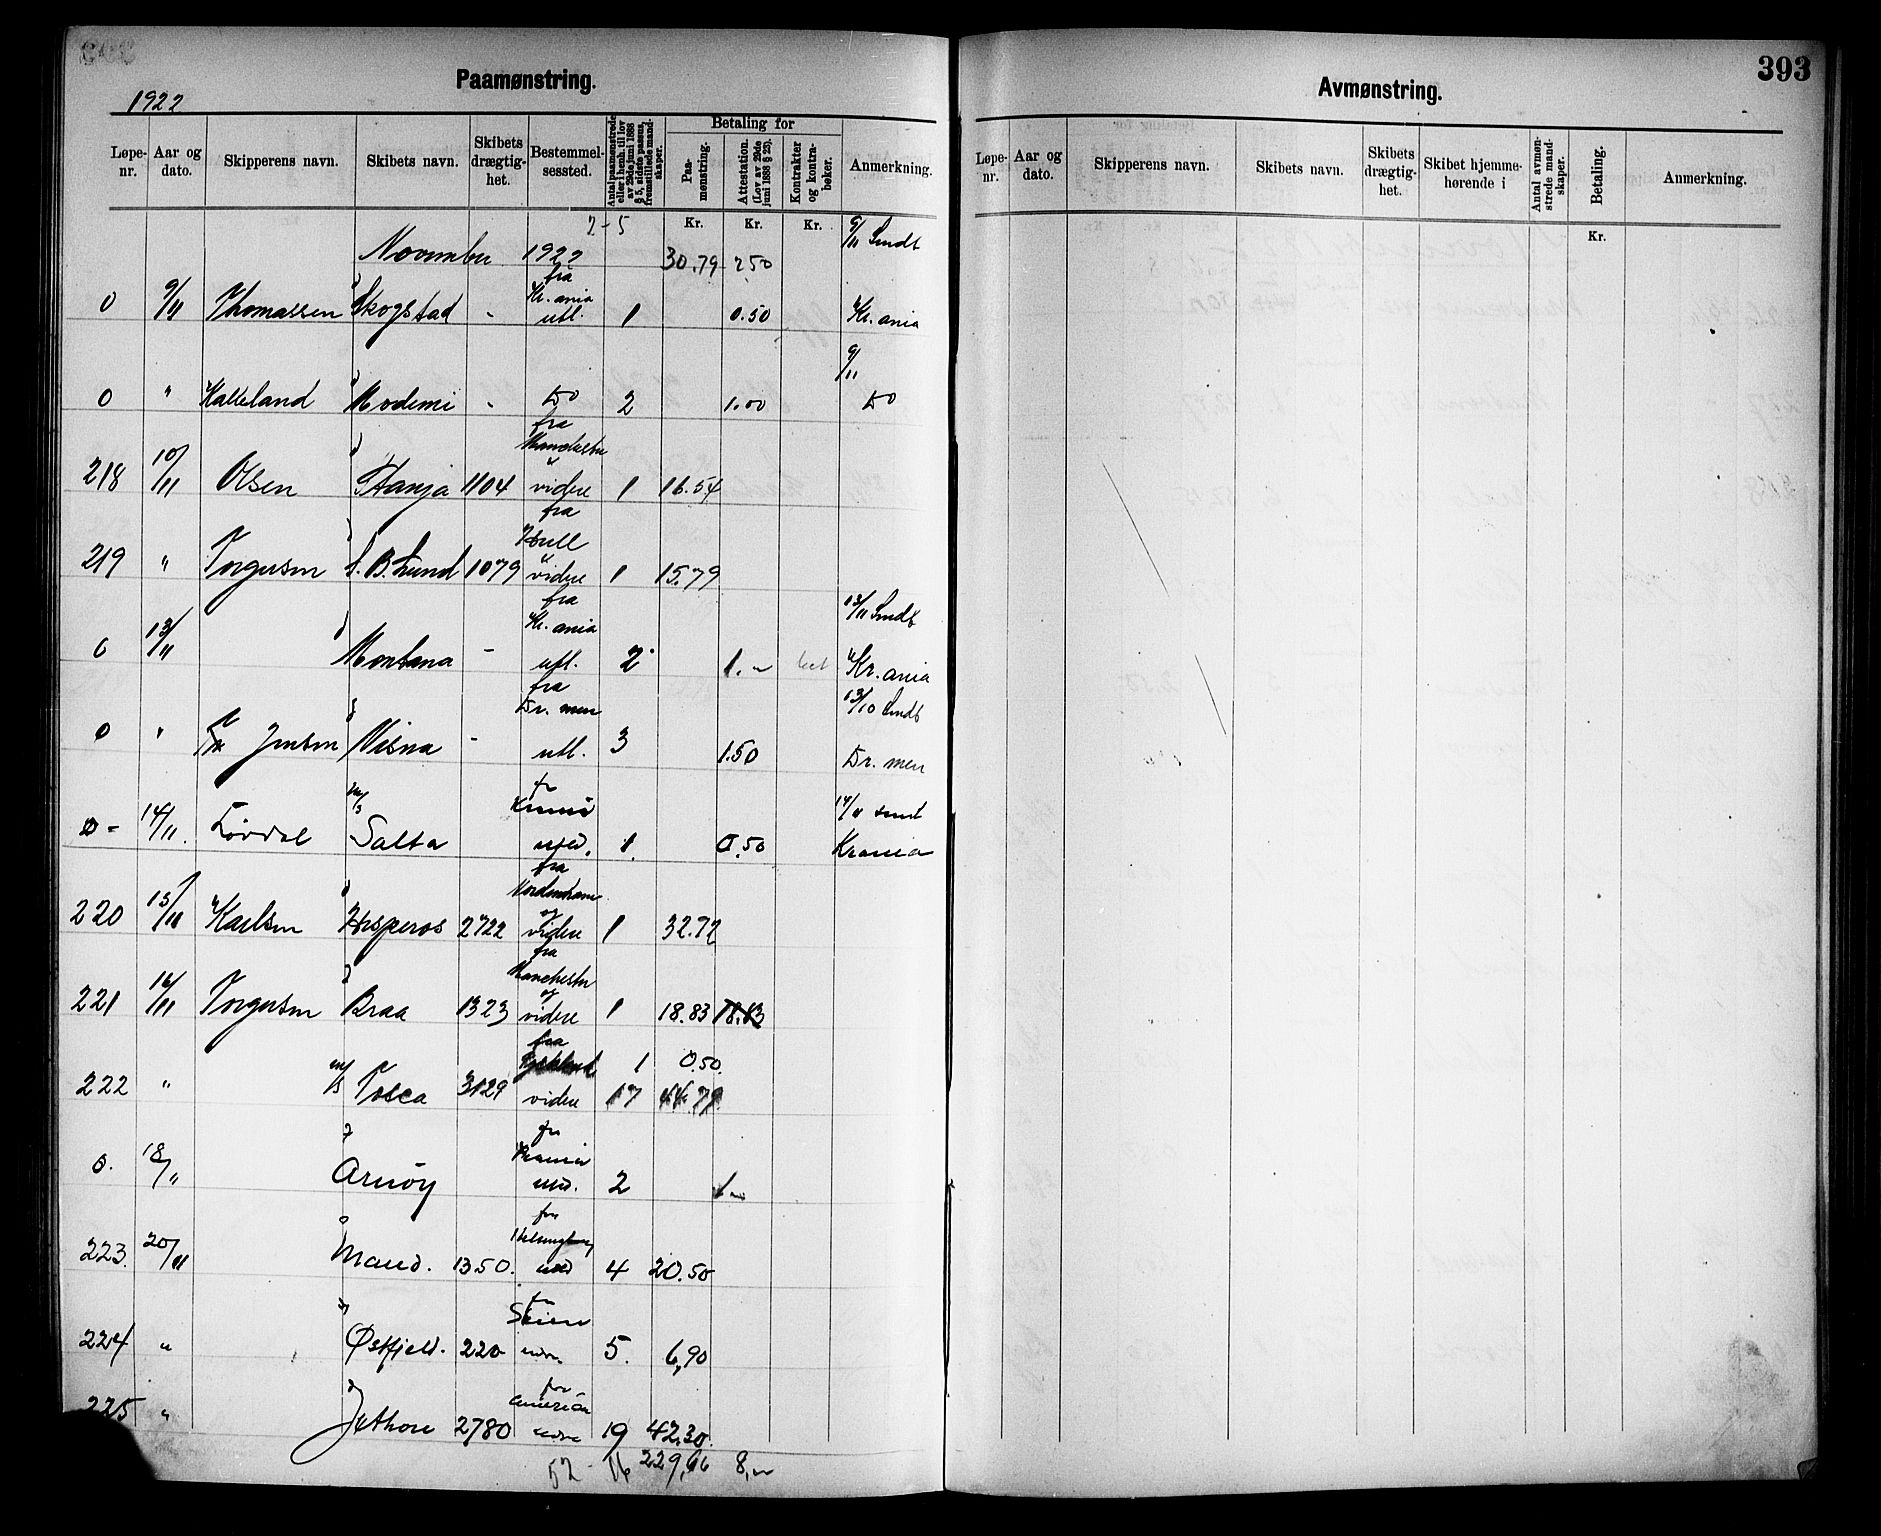 393
Paamønstring.
Avmønstring.
1922
Løpe-nr. Aar og dato. Skipperens navn. Skibets navn. Skibets drægtig-het. Bestemmel-sessted. Antal paamønstrede eller i henh. til lov av 29de juni 1888 § 5, sidste passus, fremstillede mand-skaper. Betaling for Paa-mønstring. Attestation. (Lov av 29de juni 1888 § 23). Kontrakter og kontra-bøker. Anmerkning.
Løpe-nr. Aar og dato. Skipperens navn. Skibets navn. Skibets drægtig-het. Skibet hjemme-hørende i Antal avmøn-strede mand-skaper. Betaling. Anmerkning.
Kr. Kr. Kr.
Kr.
2-5
9/11 Sendt
November 1922 30.79 2.50
fra
Kr.ania
0 9/11 Thomassen Skogstad - utl. 1 0.50 Kr.ania
9/11
0 " Kalleland Modemi - Do 2 1.00 Do
fra
Manchester
218 10/11 Olsen Stanja 1104 videre 1 16.54
fra
Hull
219 " Torgersen S.B. Lund 1079 videre 1 15.79
fra
Kr.ania 13/11 Sendt
0 13/11 Montana - utl. 2 1.- Kr.ania
fra
Dr.men 13/10 Sendt
0 " Jensen Visna - utl. 3 1.50 Dr.men
fr
m/s 14/11 sendt
0 - 14/11. Løvdal Salta 1. 0.50 Krania
fra
Nordenham
og
220 15/11 Karlsen Hesperos 2722 videre 1 32.72
fra
Manchester
og
221 16/11 Torgersen Braa 1323 videre 1 18.83 18.83
fra
1 0.50.
222 " m/s Tosca 3129 videre 17 44.79
fr
Krania
0. 18/11 Arnöy 2 1.-
fra
Helsingborg
223. 20/11 Maud. 1350. 4 20.50
fra
Skien
224 " Østfjeld. 220 5. 6,90
for
America
225 " Jethou 2780 19 42,30.
52 - 16 229,66 8,-